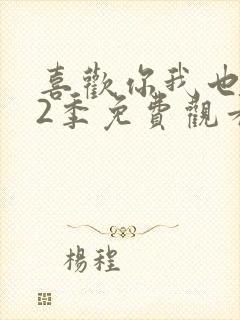 喜歡你我也
2季免費觀
楊程